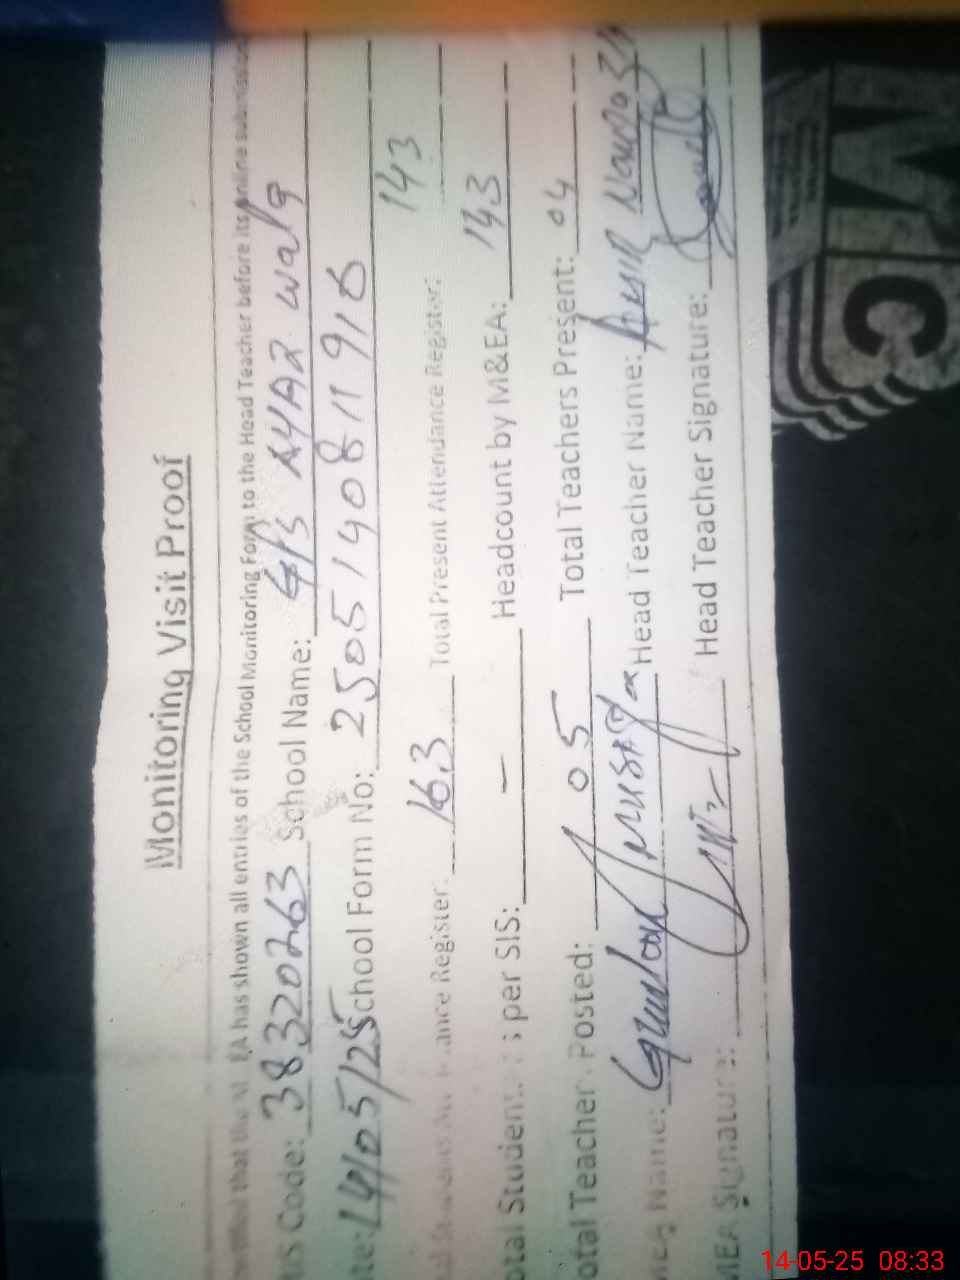 Monitoring Visit Proof
that the M&EA has shown all entries of the School Monitoring Form to the Head Teacher before its online submission
Code: 38320263 School Name: G/S AYAZ wala
te: 14/05/25 School Form No: 2505140811916
Register: 163 Total Present Attendance Register: 143
otal Students as per SIS: - Headcount by M&EA: 143
otal Teacher Posted: 05 Total Teachers Present: 04
Name: Head Teacher Name: Amir Nawaz
MEA Signature: Head Teacher Signature:
MC
14-05-25 08:33